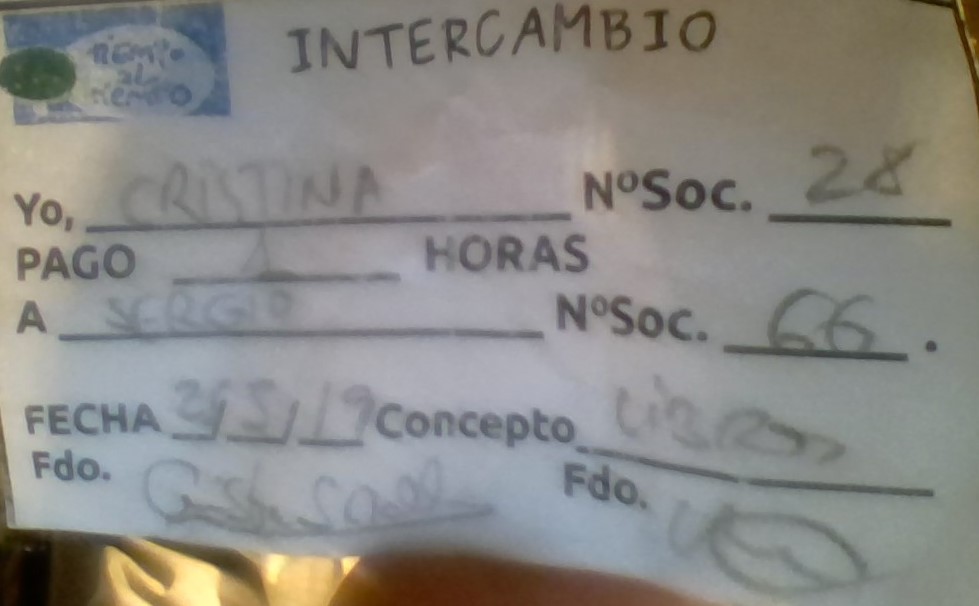 TIEMPO
AL
TIEMPO
INTERCAMBIO
Yo, CRISTINA NºSoc. 28
PAGO 1 HORAS
A SERGIO NºSoc. 66.
FECHA /5/19 Concepto Libros
Fdo. Fdo.